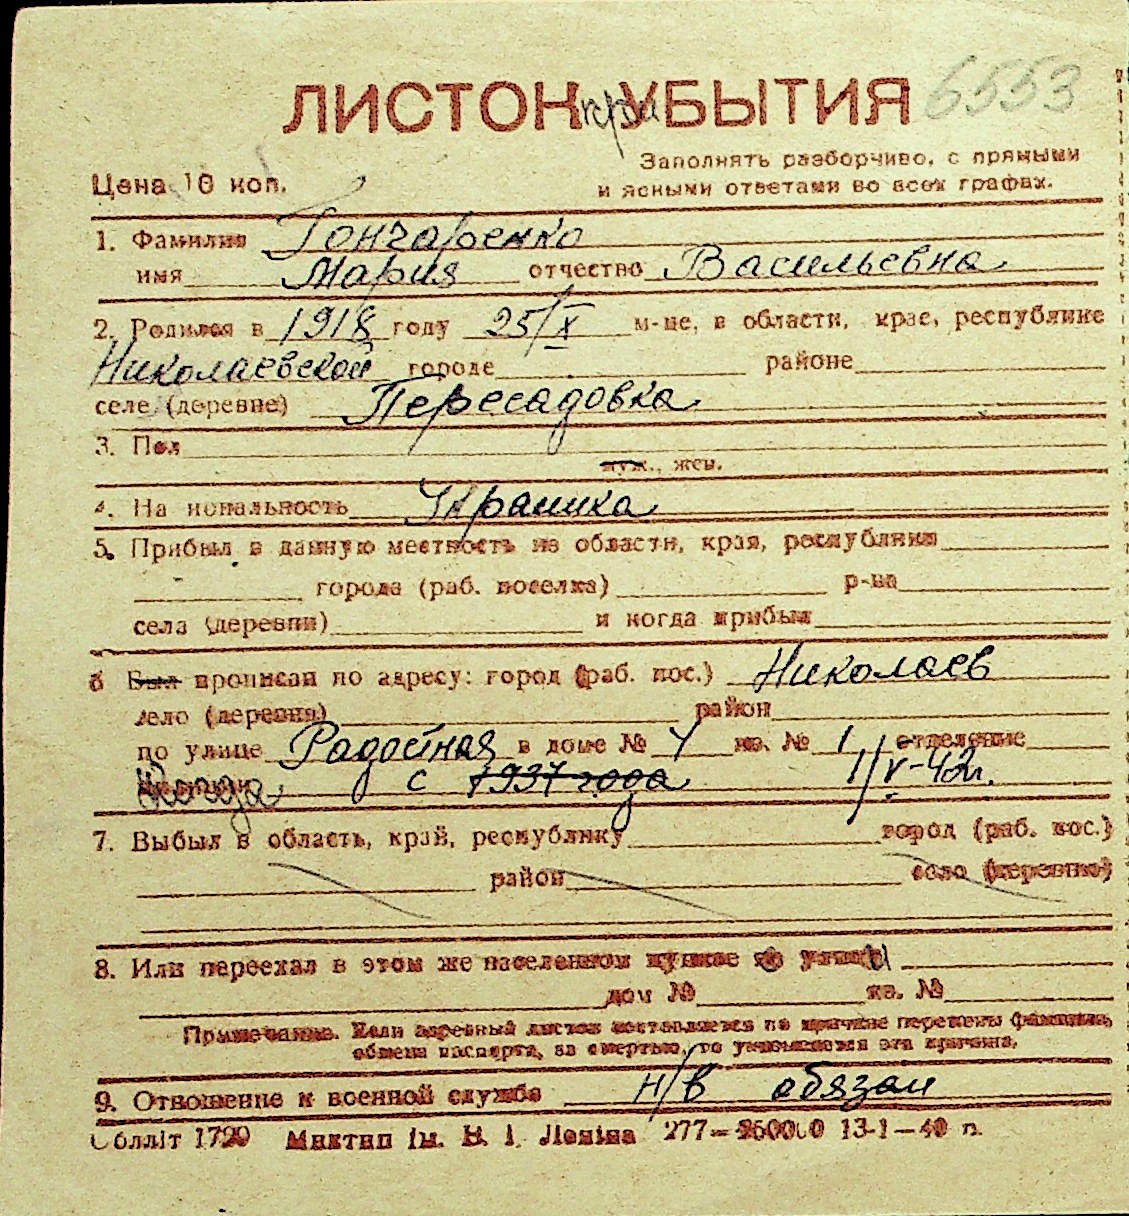 ЛИСТОК УБЫТИЯ при 6553
Заполнять разборчиво, с прямыми
Цена 10 коп. и ясными ответами во всех графах.
1. Фамилия Гончаренко
имя Мария отчество Васильевна
2. Родился в 1918 году 25/X м-це, в области, крае, республике
Николаевской городе районе
селе (деревне) Пересадовка
3. Пол
муж., жен.
4. Национальность Украинка
5. Прибыл в данную местность из области, края, республики
города (раб. поселка) р-на
села (деревни) и когда прибыл
6 Был прописан по адресу: город (раб. пос.) Николаев
село (деревня) район
по улице Радостная в доме № кв. № 1 отделение
милиции с 1937 года 1/V-42г.
7. Выбыл в область, край, республику город (раб. пос.)
район село (деревню)
8. Или переехал в этом же населенном пункте по улице
дом № кв. №
Примечание. Если адресный листок составляется по причине перемены фамилии,
обмена паспорта, за смертью, то указывается эта причина.
9. Отношение к военной службе н/в обязан
Облліт 1720 Миктип ім. В. І. Леніна 277—250000 13-1—40 р.